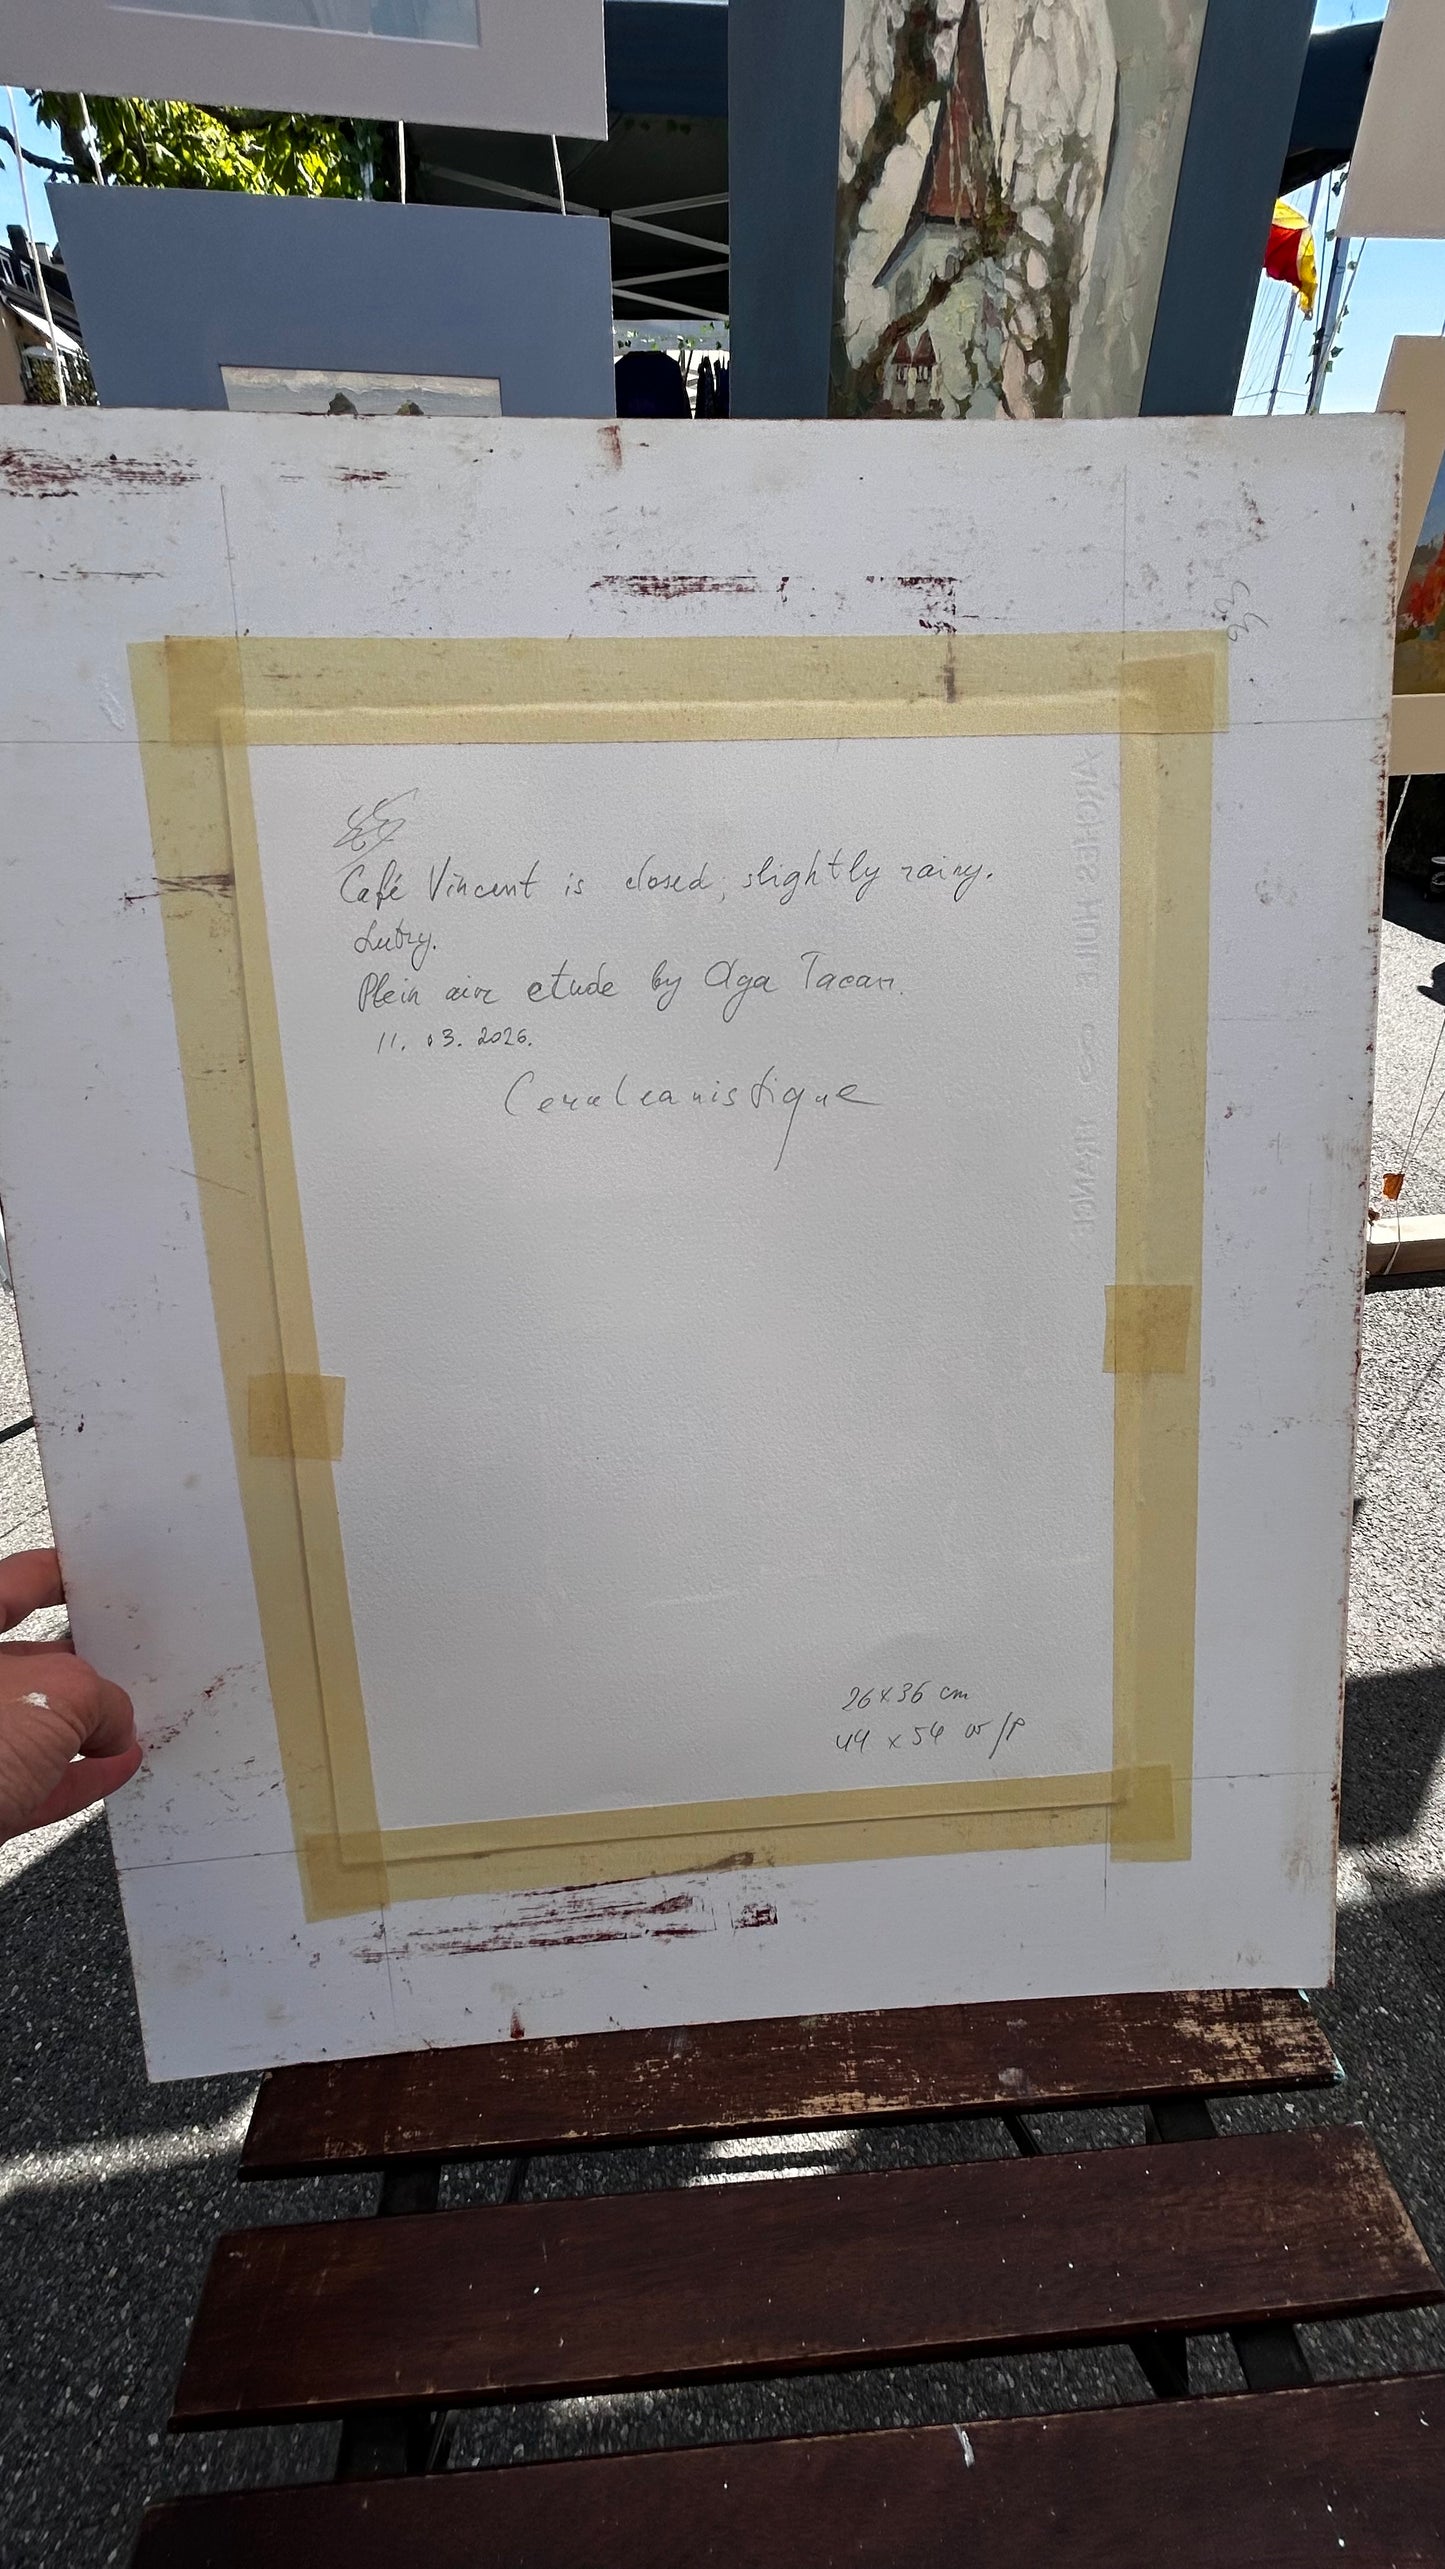 Café Vincent is closed, slightly rainy.
Lutry.
Plein air etude by Olga Tacan.
11. 03. 2026.
Ceruleanistique
ARCHES HUILE
FRANCE
26x36 cm
44 x 54 w/p